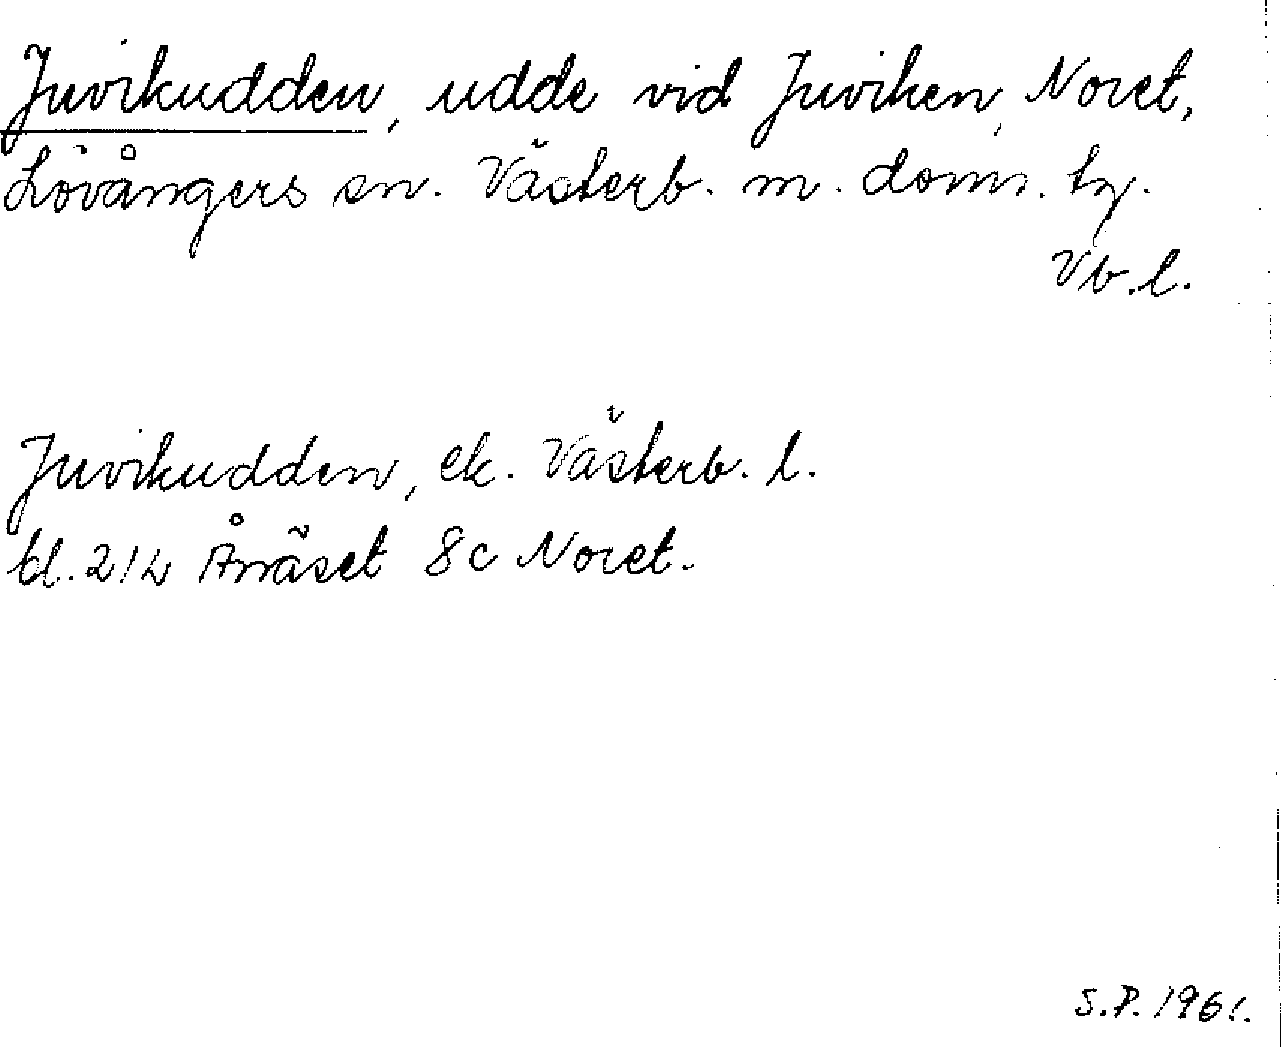 Juvikudden, udde vid Juviken, Noret,
Lövångers sn. Västerb. m. doms. tg.
Vb. l.
Juvikudden, ek. Västerb. l.
bl. 214 Ånäset 8c Noret.
S.P. 1961.